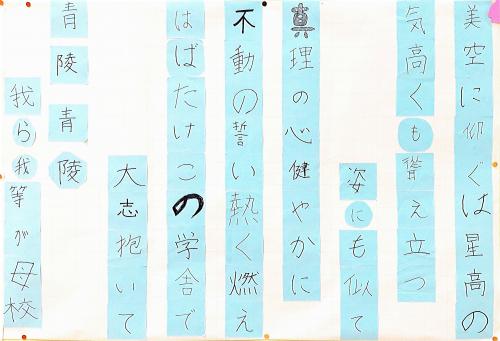 美空に仰ぐは星高の
気高くも聳え立つ
姿にも似て
真理の心健やかに
不動の誓い熱く燃え
はばたけこの学舎で
大志抱いて
青陵青陵
我ら我等が母校